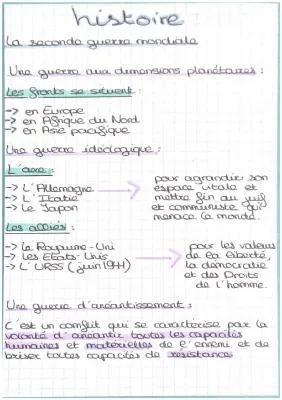 histoire
La seconde guerre mondiale
Une guerre aux dimensions planétaires :
Les fronts se situent :
-> en Europe
-> en Afrique du Nord
-> en Asie pacifique
Une guerre idéologique :
L'axe :
-> L'Allemagne
-> L'Italie
-> Le Japon
pour agrandir son
espace vitale et
mettre fin au juif
et communiste qui
menace le monde.
Les alliés :
-> Le Royaume-Uni
-> Les États-Unis
-> L'URSS (juin 1941)
pour les valeurs
de la liberté,
la démocratie
et des Droits
de l'homme.
Une guerre d'anéantissement :
C'est un conflit qui se caractérise par la
volonté d'anéantir toutes les capacités
humaines et matérielles de l'ennemi et de
briser toutes capacités de résistance